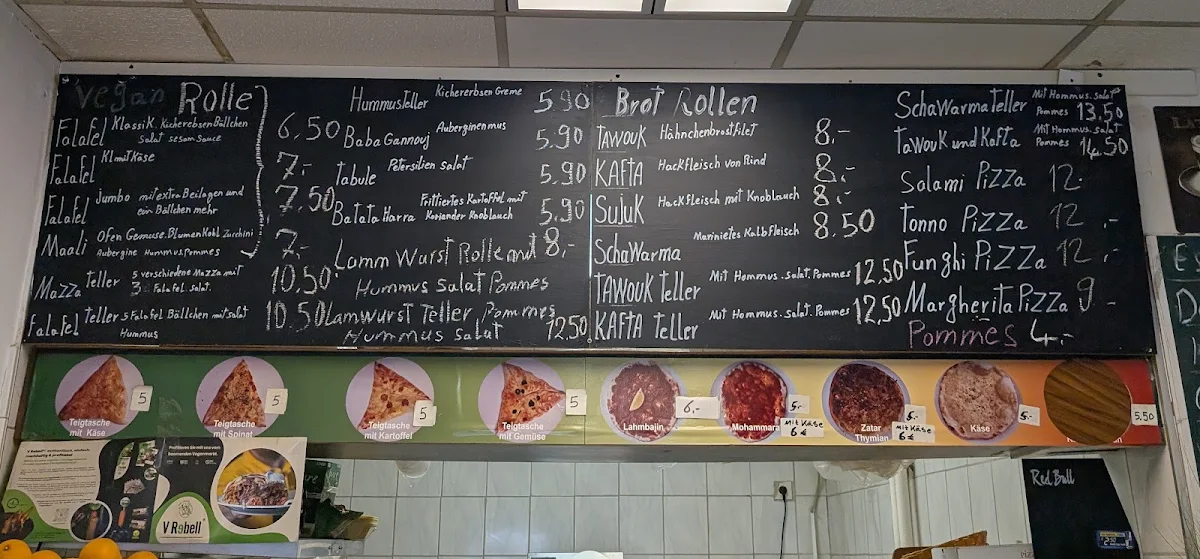 Vegan Rolle
Falafel Klassik. Kichererbsen Bällchen
Salat sesam Sauce 6.50
Falafel Kl mit Käse 7,-
Falafel Jumbo mit extra Beilagen und
ein Bällchen mehr 7.50
Maali Ofen Gemüse. Blumenkohl Zucchini
Aubergine Hummus Pommes 7,-
Mazza Teller 5 verschiedene Mazza mit
3 Falafel. Salat. 10.50
Falafel Teller 5 Falafel Bällchen mit salat
Hummus 10.50
Hummusteller Kichererbsen Creme 5.90
Baba Gannouj Auberginenmus 5.90
Tabule Petersilien Salat 5.90
Batata Harra Frittiertes Kartoffel mit
Koriander Knoblauch 5.90
Lamm Wurst Rolle mit 8,-
Hummus Salat Pommes
Lamwurst Teller, Pommes
Hummus Salat 12.50
Brot Rollen
TAWOUK Hähnchenbrostfilet 8,-
KAFTA Hackfleisch von Rind 8,-
SUJUK Hackfleisch mit Knoblauch 8,-
SchaWarma Marinietes Kalbfleisch 8.50
TAWOUK Teller Mit Hommus. Salat. Pommes 12,50
KAFTA Teller Mit Hommus. Salat. Pommes 12,50
SchaWarmaTeller Mit Hommus. Salat
Pommes 13.50
Tawouk und Kafta Mit Hommus. Salat
Pommes 14.50
Salami Pizza 12.-
Tonno Pizza 12,-
Funghi Pizza 12,-
Margherita Pizza 9,-
Pommes 4,-
Teigtasche
mit Käse
5
Teigtasche
mit Spinat
5
Teigtasche
mit Kartoffel
5
Teigtasche
mit Gemüse
5
Lahmbajin
6,-
Mohammara
5,-
Mit Käse
6 €
Zatar
Thymian
5,-
Mit Käse
6 €
Käse
5,-
5,50
V Rebell
Red Bull